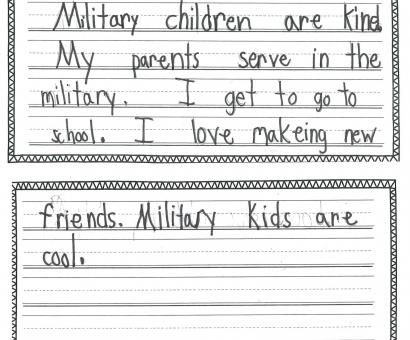 Military children are kind.
My parents serve in the
military. I get to go to
school. I love makeing new
friends. Military Kids are
cool.